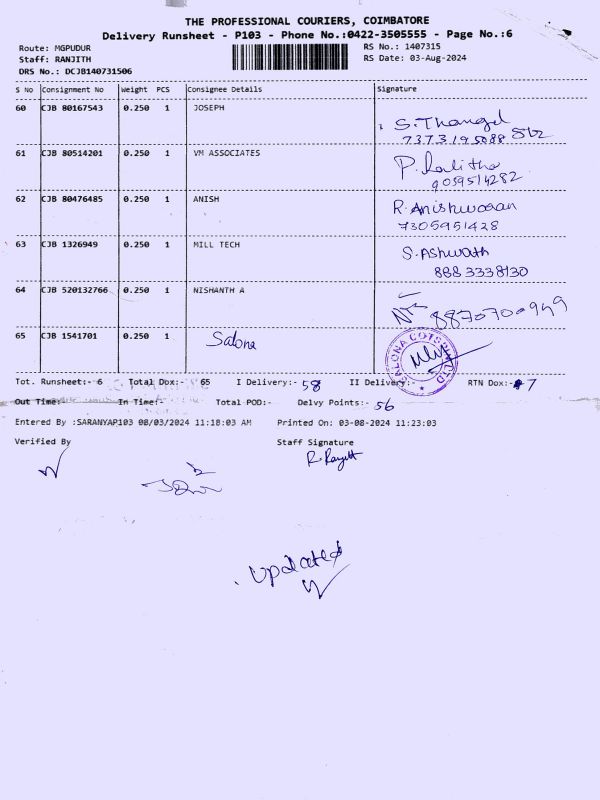 THE PROFESSIONAL COURIERS, COIMBATORE
Delivery Runsheet - P103 - Phone No.:0422-3505555 - Page No.:6
Route: MGPUDUR
RS No.: 1407315
Staff: RANJITH
RS Date: 03-Aug-2024
DRS No.: DCJB140731506
S No Consignment No Weight PCS Consignee Details Signature
60 CJB 80167543 0.250 1 JOSEPH S. Thangal
7373195088
61 CJB 80514201 0.250 1 VM ASSOCIATES P. Lalitha
9059514282
62 CJB 80476485 0.250 1 ANISH R. Anishwaran
7305951428
63 CJB 1326949 0.250 1 MILL TECH S. Ashwath
8883338130
64 CJB 520132766 0.250 1 NISHANTH A 8870700949
65 CJB 1541701 0.250 1 Salona
Tot. Runsheet:- 6 Total Dox:- 65 I Delivery:- 58 II Delivery:- RTN Dox:- 7
Out Time:- In Time:- Total POD:- Delvy Points:- 56
Entered By :SARANYAP103 08/03/2024 11:18:03 AM Printed On: 03-08-2024 11:23:03
Verified By Staff Signature
R. Ranjith
Updated